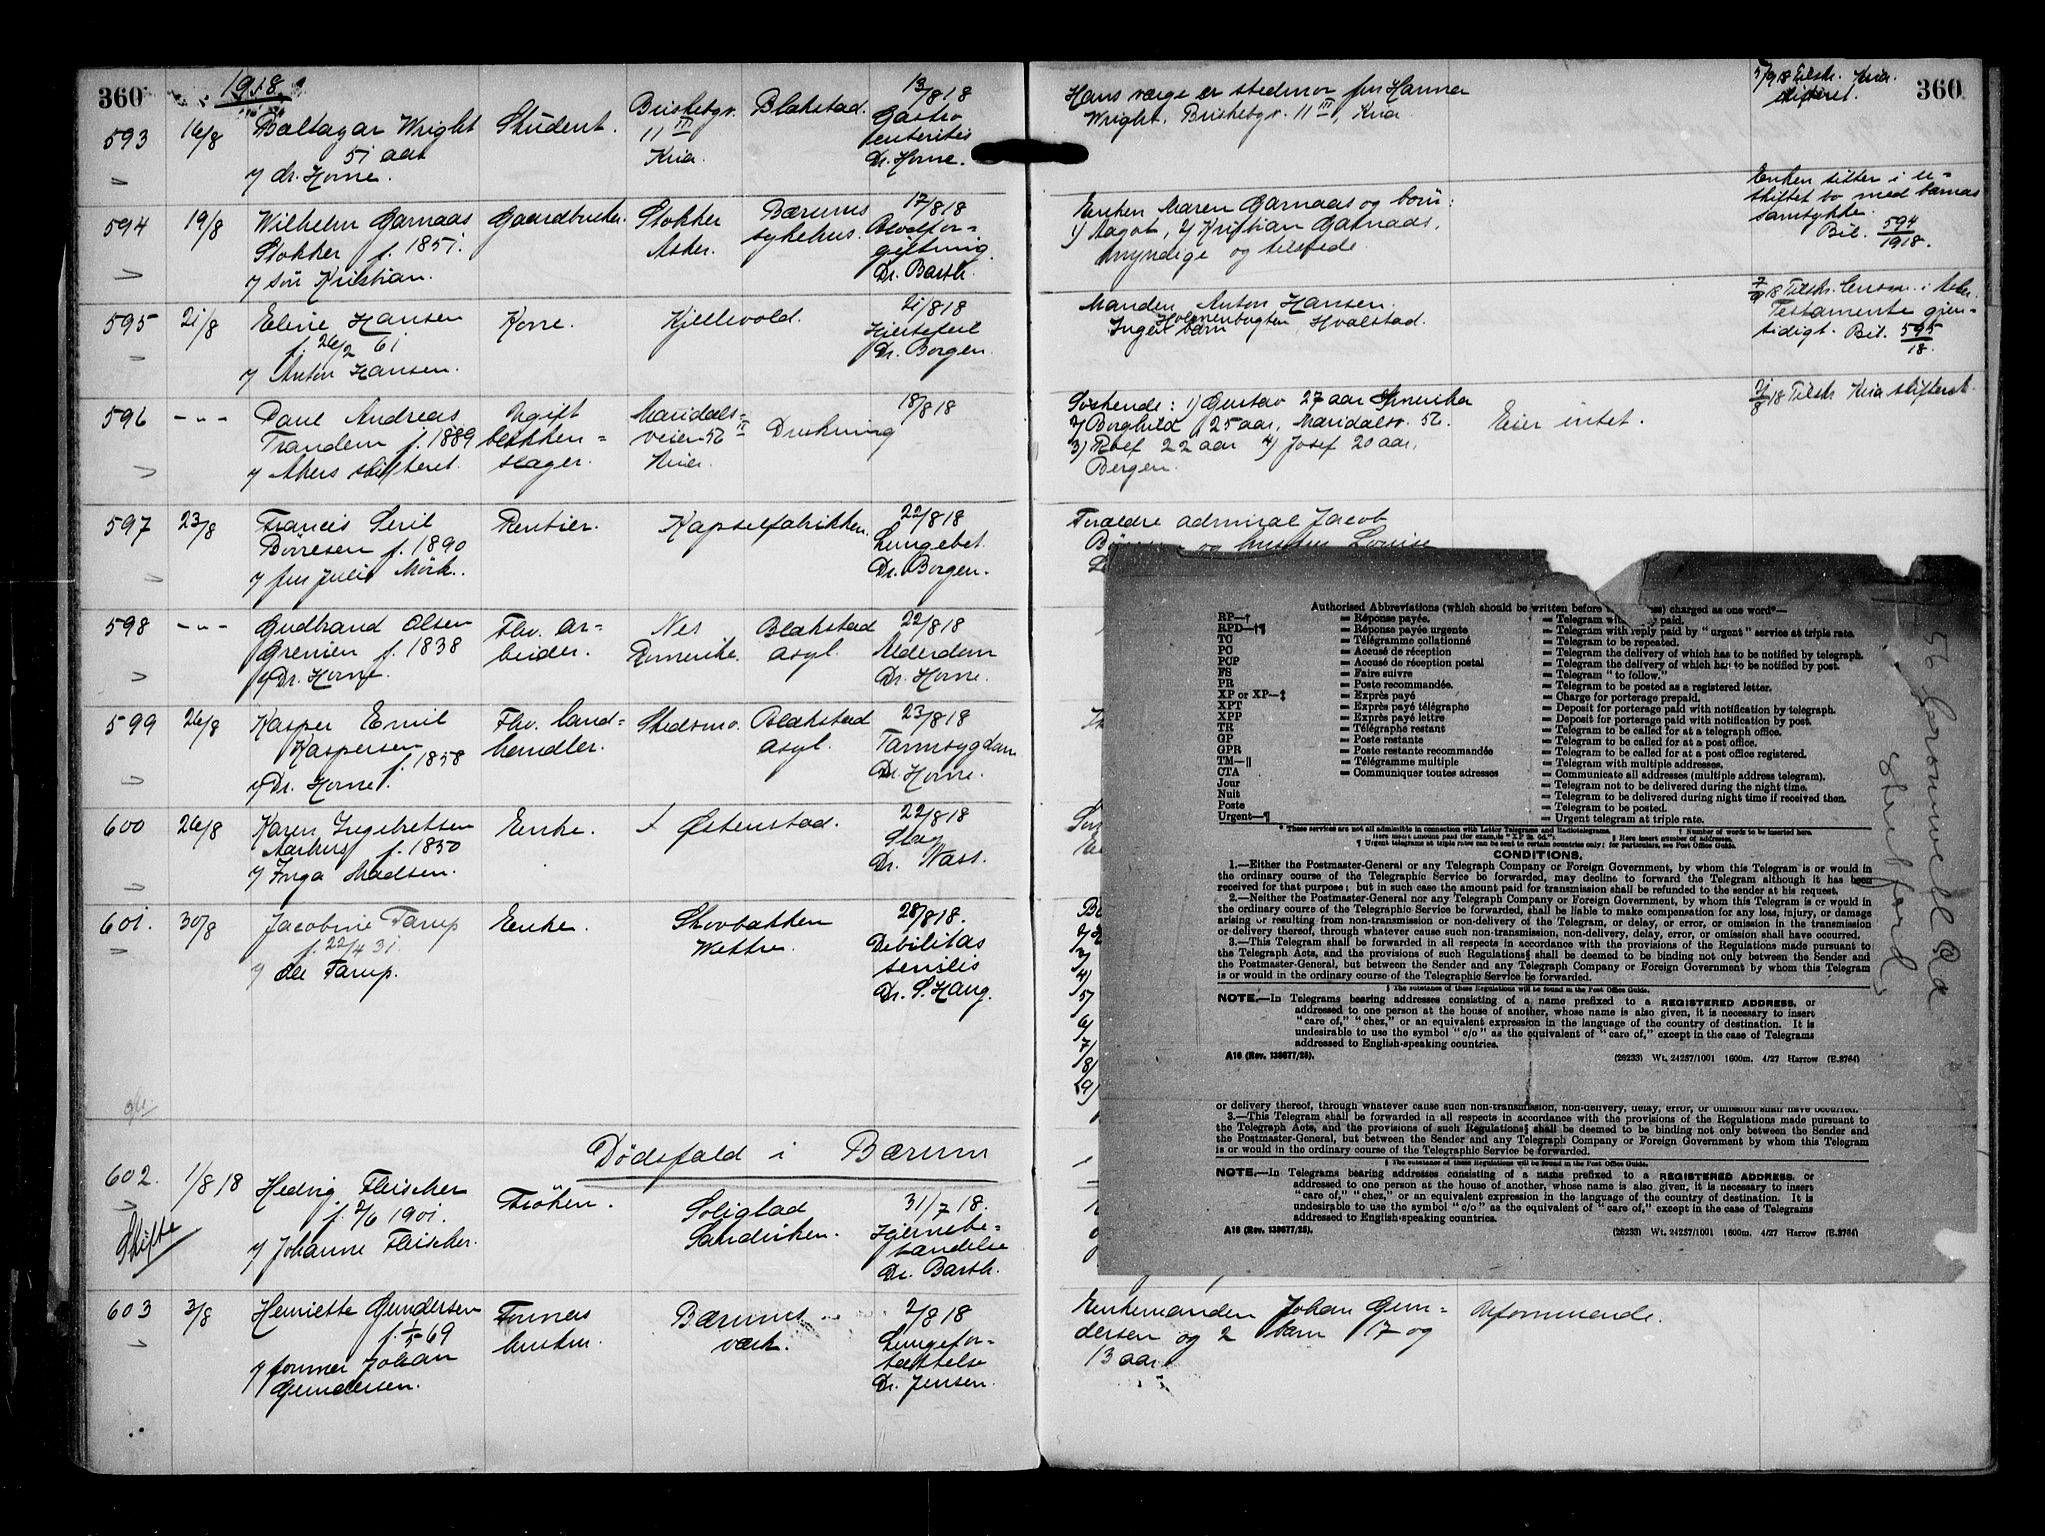 360
1918.
593
16/8
Baltazar Wright
51 aar
v/ dr. Horne.
Student.
Briskebgv.
11 III
Kria.
Blakstad.
13/8 18
Gastro
enteritis
Dr. Horne.
594
19/8
Wilhelm Garnaas
Slokker f. 1851.
v/ søn Kristian.
Gaardbruker.
Slokker
Asker.
Bærums
sykehus.
17/8 18
Blodfor-
giftning.
Dr. Barth.
595
21/8
Eline Hansen
f. 26/2 61
v/ Anton Hansen.
Kone.
Kjellevold.
21/8 18
Hjertefeil
Dr. Borgen.
596
- " -
Paul Andreas
Trandem f. 1889
v/ Akers skifteret.
Ugift
blikken-
slager.
Maridals-
veien 56 II
Kria.
Drukning
18/8 18
597
23/8
Francis Seril
Börresen f. 1890
v/ fru Julie Mörk.
Rentier.
Kapselfabrikken.
22/8 18
Lungebet.
Dr. Borgen.
598
- " -
Gudbrand Olsen
Grenien f. 1838
v/ Dr. Horne.
Fhv. ar-
beider.
Nes
Romerike.
Blakstad
asyl.
22/8 18
Alderdom
Dr. Horne.
599
26/8
Kasper Emil
Kaspersen
f. 1858
v/ Dr. Horne.
Fhv. land-
handler.
Skedsmo.
Blakstad
asyl.
23/8 18
Tarmsygdom
Dr. Horne.
600
26/8
Karen Ingebretsen
Aarhus f. 1850
v/ Inga Madsen.
Enke.
Østenstad.
22/8 18
Slag
Dr. Wass.
601.
30/8
Jacobine Tarup
f. 22/4 31
v/ Ole Tarup.
Enke.
Skovbakken
Wettre.
28/8 18.
Debilitas
senilis
Dr. S. Haug.
Dödsfald i Bærum
602.
1/8 18
Skifte
Hedvig Fleischer
f. 2/6 1901.
v/ Johanne Fleischer.
Fröken.
Soliglad
Sandviken.
31/7 18.
Hjernebe-
tændelse
Dr. Barth.
603
3/8
Henriette Gundersen
f. 1/5 69
v/ former Johan
Gundersen.
Formers
hustru.
Bærums
verk.
2/8 18
Lungefor-
tættelse
Dr. Jensen.
360
Hans værge er stedmor fru Hanna
Wright, Briskebgv. 11 III, Kria.
5/9 18 Tilskr. Kria
skifteret.
Enken Maren Garnaas og børn:
1) Aagot, 2) Kristian Garnaas,
myndige og tilstede.
Enken sitter i u-
skiftet bo med barnas
samtykke.
Bil. 594/1918.
Manden Anton Hansen.
Holmenbugten Hvalstad.
Inget barn
7/9 18 Tilskr. Lensm. i Asker.
Testamente gjen-
sidigt. Bil. 595/18.
Söskende: 1) Gustav 27 aar Amerika
2) Borghild 25 aar, Maridalsv. 56.
3) Rolf 22 aar 4) Josef 20 aar,
Bergen.
Eier intet.
21/8 18 Tilskr Kria skifteret
Foreldre admiral Jacob
og hustru Louise
Authorised Abbreviations (which should be written before ) charged as one word*—
RP—† = Réponse payée. = Telegram with paid.
RPD—†¶ = Réponse payée urgente = Telegram with reply paid by "urgent" service at triple rate.
TC = Télégramme collationné = Telegram to be repeated.
PC = Accusé de réception = Telegram the delivery of which has to be notified by telegraph.
PCP = Accusé de réception postal = Telegram the delivery of which has to be notified by post.
FS = Faire suivre = Telegram "to follow."
PR = Poste recommandée. = Telegram to be posted as a registered letter.
XP or XP—‡ = Exprès payé = Charge for porterage prepaid.
XPT = Exprès payé télégraphe = Deposit for porterage paid with notification by telegraph.
XPP = Exprès payé lettre = Deposit for porterage paid with notification by post.
TR = Télégraphe restant = Telegram to be called for at a telegraph office.
GP = Poste restante = Telegram to be called for at a post office.
GPR = Poste restante recommandée = Telegram to be called for at a post office registered.
TM—|| = Télégramme multiple = Telegram with multiple addresses.
CTA = Communiquer toutes adresses = Communicate all addresses (multiple address telegram).
Jour = Telegram not to be delivered during the night time.
Nuit = Telegram to be delivered during night time if received then.
Poste = Telegram to be posted.
Urgent—¶ = Urgent telegram at triple rate.
* These services are not all admissible in connection with Letter Telegrams and Radiotelegrams. † Number of words to be inserted here.
‡ Here insert amount paid (for example "XP 2s. 0d."). || Here insert number of addresses.
¶ Urgent telegrams at triple rates can be sent to certain countries only; for particulars, see Post Office Guide.
CONDITIONS.
1.—Either the Postmaster-General or any Telegraph Company or Foreign Government, by whom this Telegram is or would in
the ordinary course of the Telegraphic Service be forwarded, may decline to forward the Telegram although it has been
received for that purpose; but in such case the amount paid for transmission shall be refunded to the sender at his request.
2.—Neither the Postmaster-General nor any Telegraph Company or Foreign Government, by whom this Telegram is or would in
the ordinary course of the Telegraphic Service be forwarded, shall be liable to make compensation for any loss, injury, or damage
arising or resulting from non-transmission or non-delivery of the Telegram, or delay, or error, or omission in the transmission
or delivery thereof, through whatever cause such non-transmission, non-delivery, delay, error, or omission shall have occurred.
3.—This Telegram shall be forwarded in all respects in accordance with the provisions of the Regulations made pursuant to
the Telegraph Acts, and the provisions of such Regulations§ shall be deemed to be binding not only between the Sender and
the Postmaster-General, but between the Sender and any Telegraph Company or Foreign Government by whom this Telegram
is or would in the ordinary course of the Telegraphic Service be forwarded.
§ The substance of these Regulations will be found in the Post Office Guide.
NOTE.—In Telegrams bearing addresses consisting of a name prefixed to a REGISTERED ADDRESS, or
addressed to one person at the house of another, whose name is also given, it is necessary to insert
"care of," "chez," or an equivalent expression in the language of the country of destination. It is
undesirable to use the symbol "c/o" as the equivalent of "care of," except in the case of Telegrams
addressed to English-speaking countries.
A16 (Rev. 138677/26). (26233) Wt. 24257/1001 1600m. 4/27 Harrow (E.3764)
or delivery thereof, through whatever cause such non-transmission, non-delivery, delay, error, or omission shall have occurred.
3.—This Telegram shall be forwarded in all respects in accordance with the provisions of the Regulations made pursuant to
the Telegraph Acts, and the provisions of such Regulations§ shall be deemed to be binding not only between the Sender and
the Postmaster-General, but between the Sender and any Telegraph Company or Foreign Government by whom this Telegram
is or would in the ordinary course of the Telegraphic Service be forwarded.
§ The substance of these Regulations will be found in the Post Office Guide.
NOTE.—In Telegrams bearing addresses consisting of a name prefixed to a REGISTERED ADDRESS, or
addressed to one person at the house of another, whose name is also given, it is necessary to insert
"care of," "chez," or an equivalent expression in the language of the country of destination. It is
undesirable to use the symbol "c/o" as the equivalent of "care of," except in the case of Telegrams
addressed to English-speaking countries.
A16 (Rev. 138677/26). (26233) Wt. 24257/1001 1600m. 4/27 Harrow (E.3764)
56 Cromwell Rd
Stretford
Enkemanden Johan Gun-
dersen og 2 barn 17 og
13 aar
Uformuende.